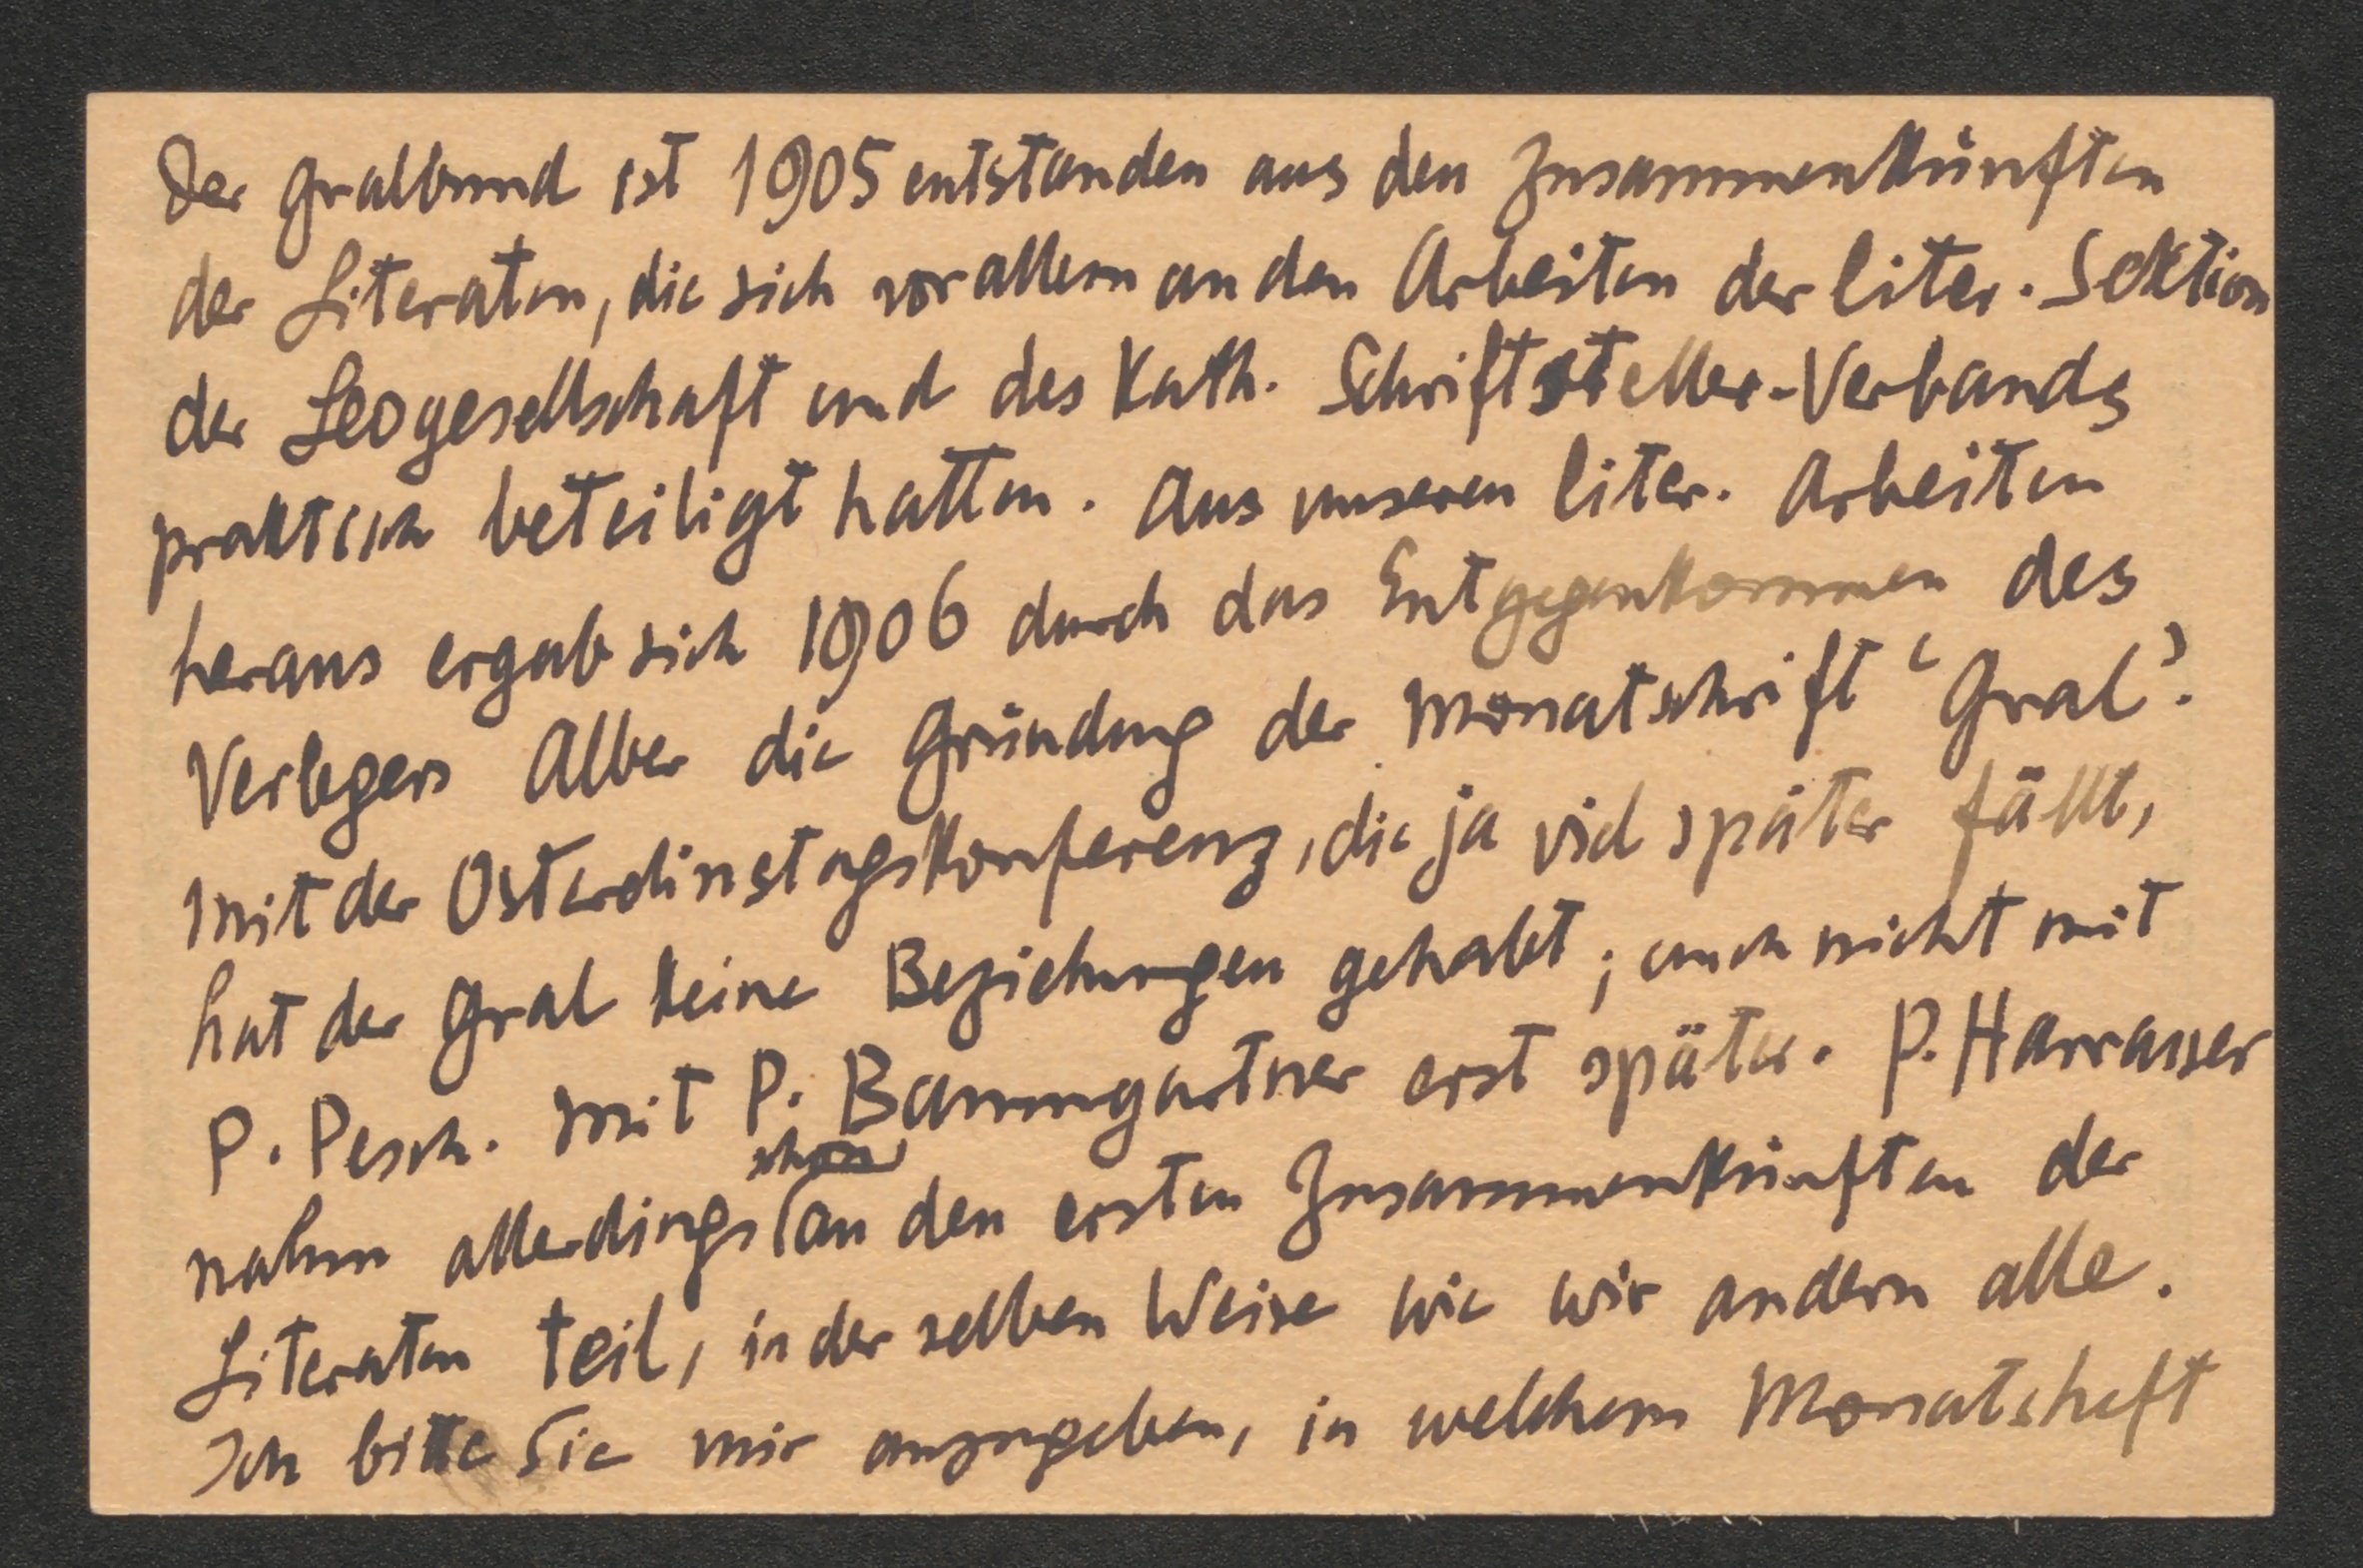 Der Gralbund ist 1905 entstanden aus den Zusammenkünften
der Literaten, die sich vor allem an den Arbeiten der liter. Sektion
der Leogesellschaft und des Kath. Schriftsteller-Verbands
praktisch beteiligt hatten. Aus unseren liter. Arbeiten
heraus ergab sich 1906 durch das Entgegenkommen des
Verlegers Alber die Gründung der Monatschrift ‘Gral’.
Mit der Osterdinstagskonferenz, die ja viel später fällt,
hat der Gral keine Beziehungen gehabt; auch nicht mit
P. Pesch. Mit P. Baumgartner erst später. P. Harrasser
schon
nahm allerdings an den ersten Zusammenkünften der
Literaten teil, in der selben Weise wie wir andern alle.
Ich bitte Sie mir anzugeben, in welchem Monatsheft